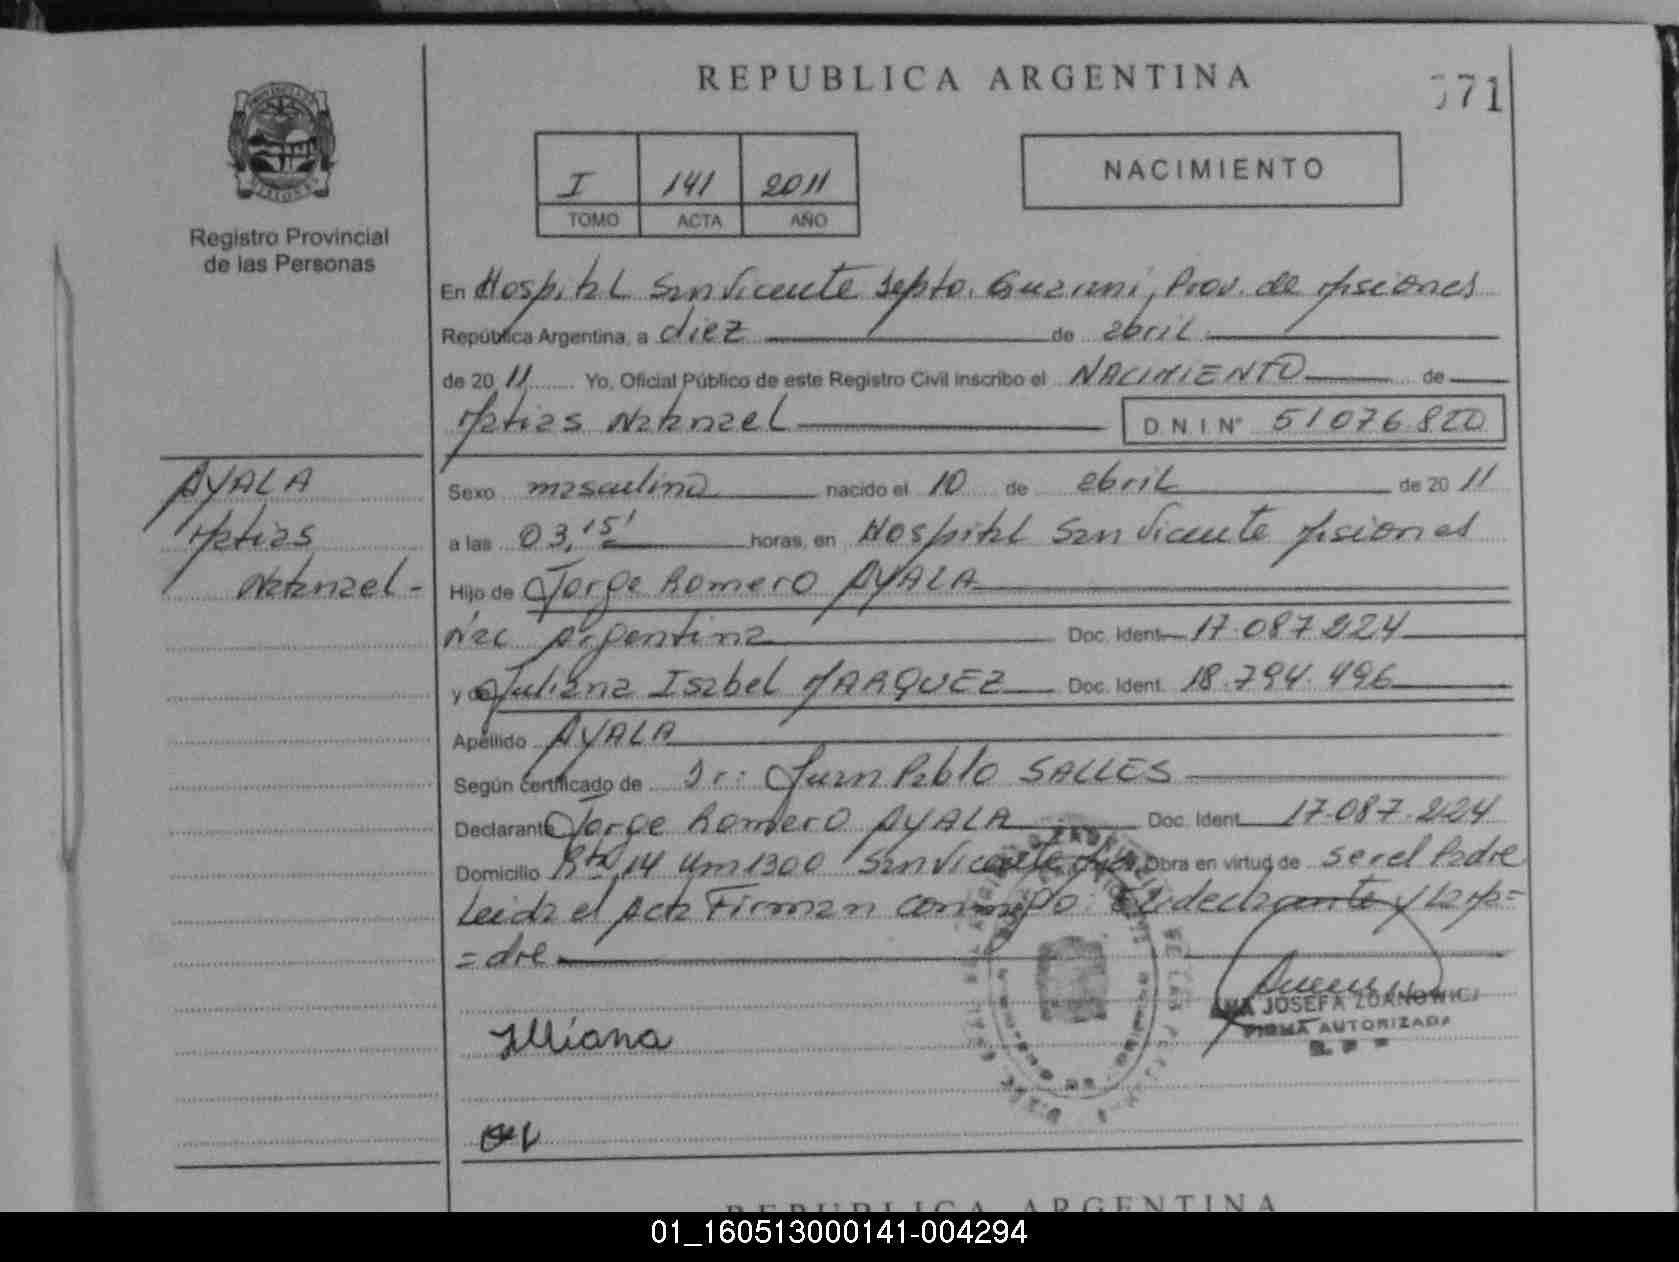 REPUBLICA ARGENTINA
71
I 141 2011
TOMO ACTA AÑO
NACIMIENTO
Registro Provincial
de las Personas
En Hospital San Vicente Depto. Guarani, Prov. de Misiones
República Argentina, a diez de abril
de 2011 Yo, Oficial Público de este Registro Civil inscribo el NACIMIENTO de
Matias Natanael D.N.I. N° 51076.820
AYALA
Matias
Natanael-
Sexo masculino nacido el 10 de abril de 2011
a las 03,15' horas, en Hospital San Vicente Misiones
Hijo de Jorge Romero AYALA
Nac Argentina Doc. Ident. 17.087.224
y de Juliana Isabel MARQUEZ Doc. Ident. 18.794.496
Apellido AYALA
Según certificado de Dr: Juan Pablo SALLES
Declarante Jorge Romero AYALA Doc. Ident. 17.087.224
Domicilio Rta 14 Km 1300 San Vicente Obra en virtud de ser el Padre
Leida el Acta Firman conmigo El declarante y la ma=
=dre
ANA JOSEFA ZDANOWICZ
FIRMA AUTORIZADA
REPUBLICA ARGENTINA
01_160513000141-004294